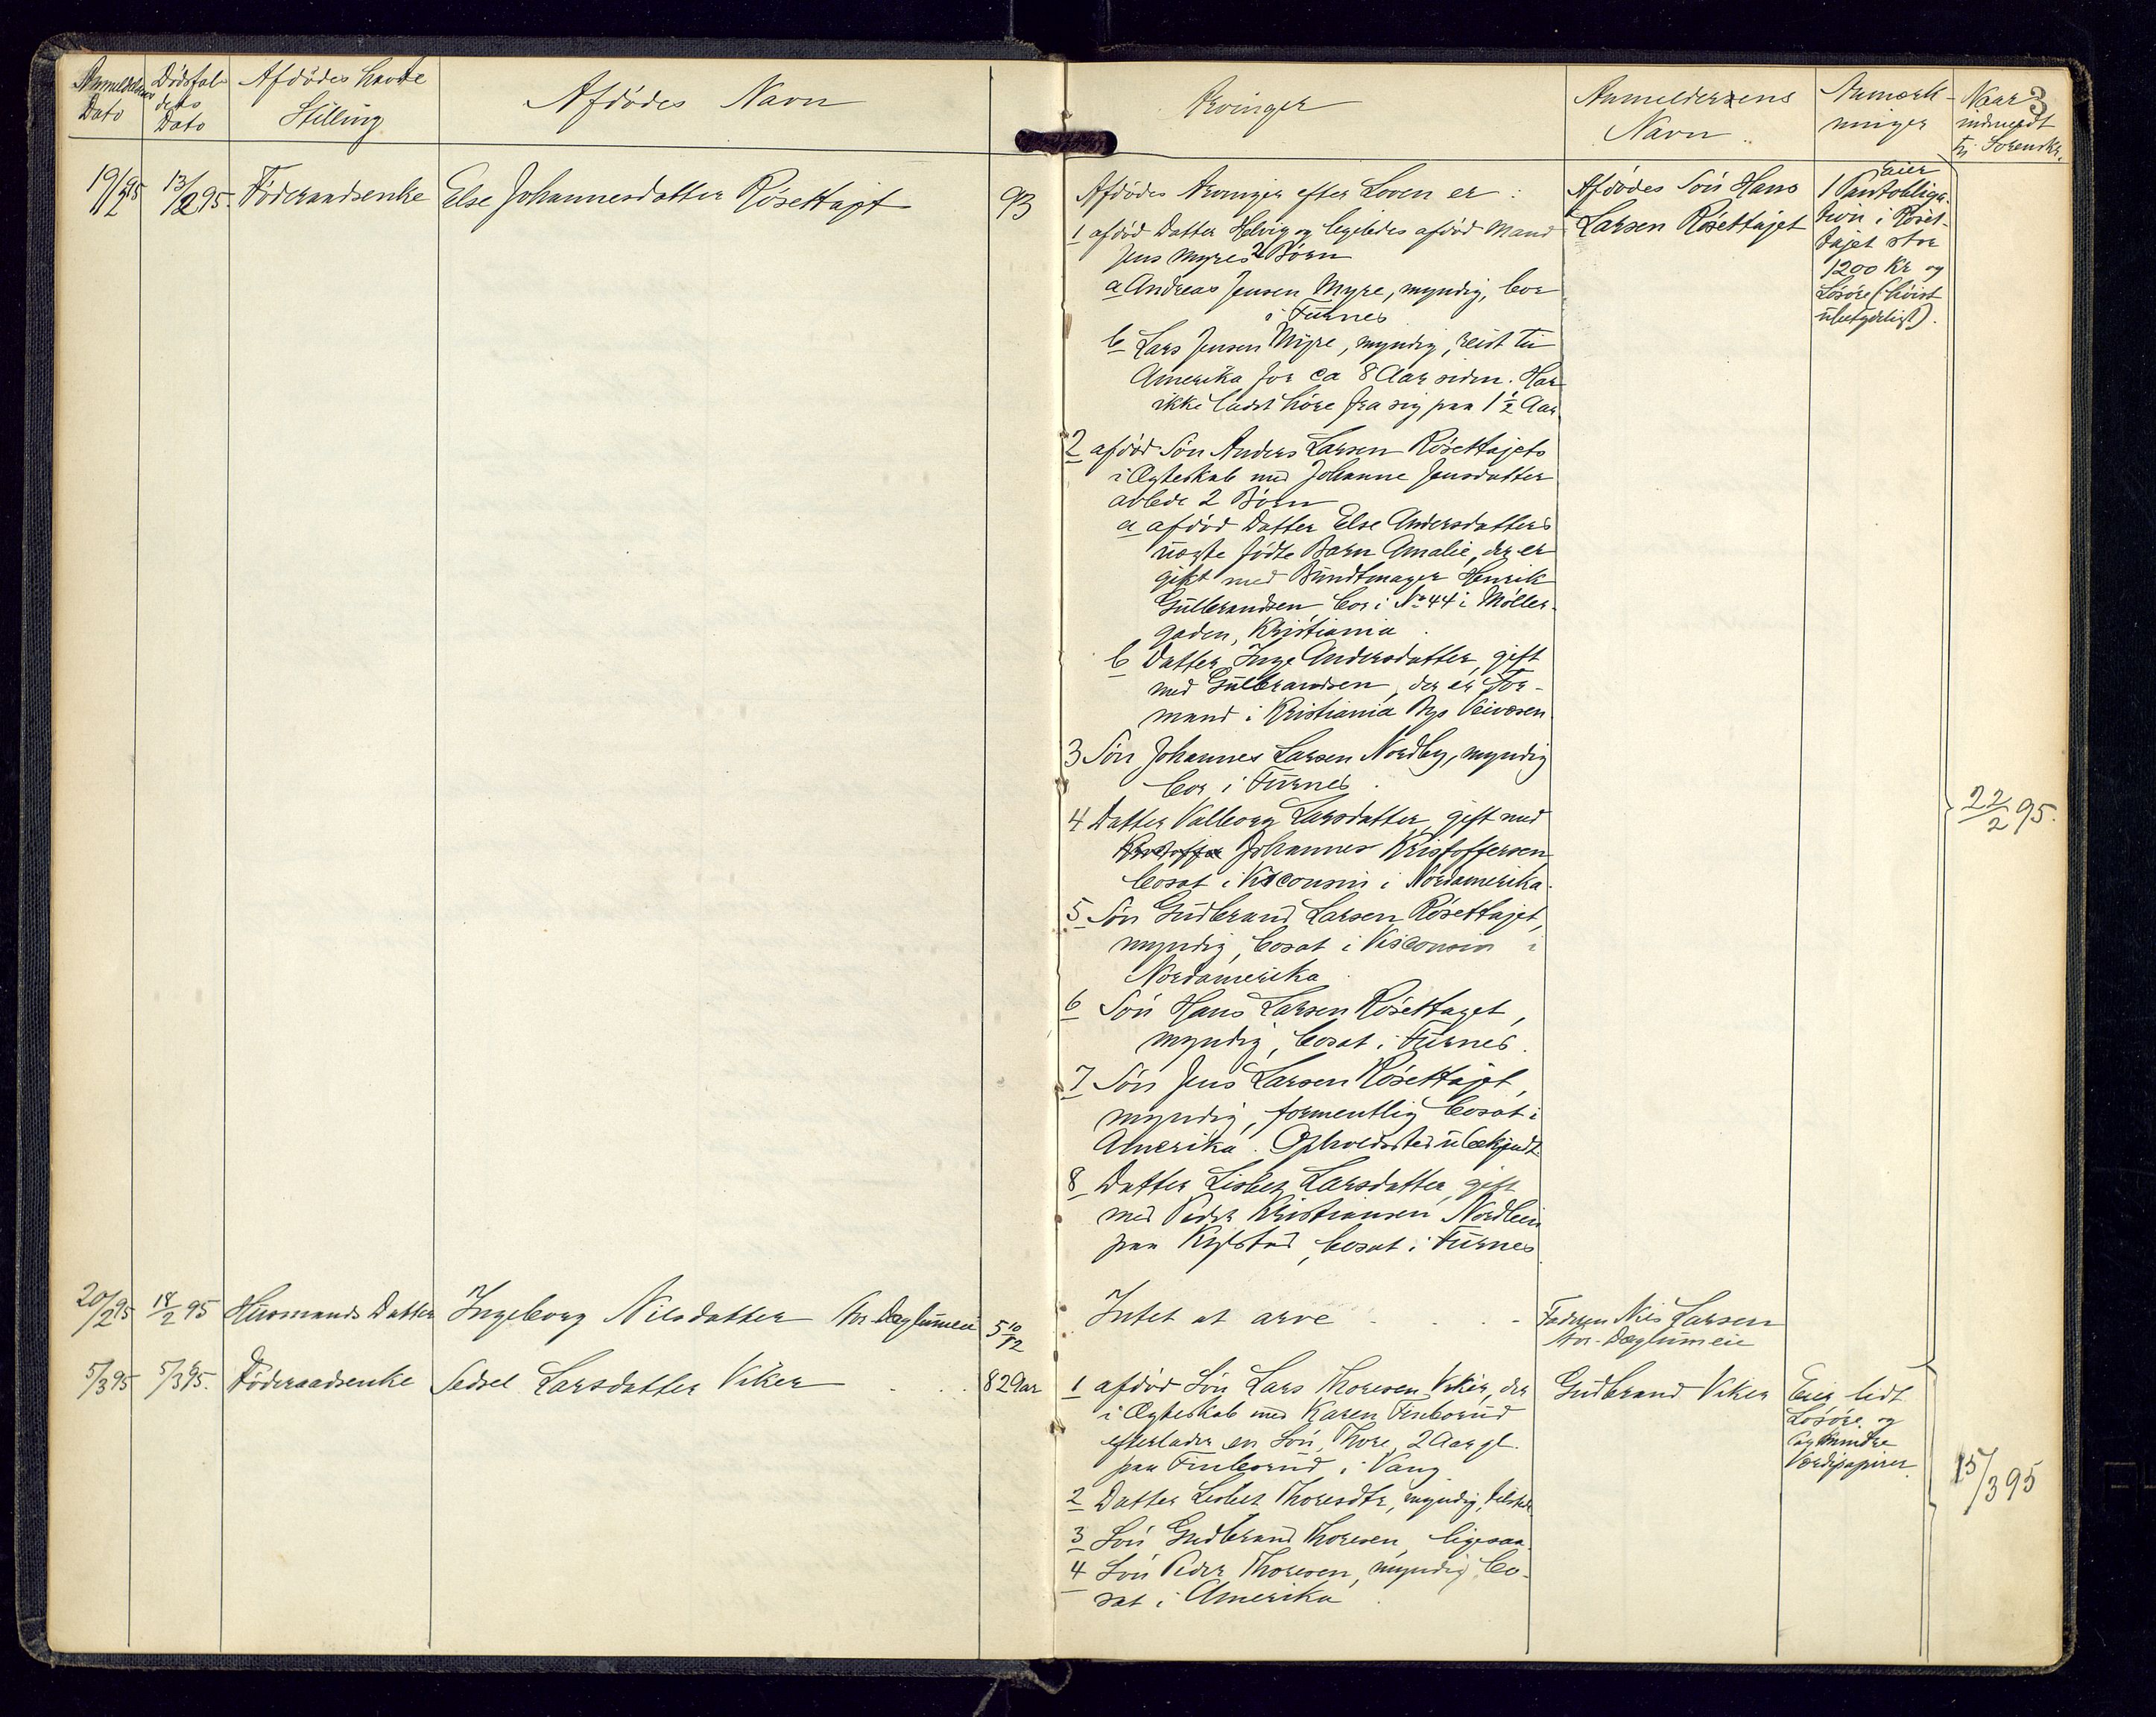 3
Anmeldelsens Dato
Dødsfaldets Dato
Afdødes havde Stilling
Afdødes Navn
Arvinger
Anmelderens Navn
Anmærkninger
Naar indmeldt til Sorenskr.
19/2 95
13/2 95.
Föderaadsenke
Else Johannesdatter Rösettajet
93
Afdødes Arvinger efter Loven er :
1 afdöd Datter Helvig og ligeledes afdöd Mand
Jens Myres 2 Børn
a Andreas Jensen Myre, myndig, bor
i Furnes
b Lars Jensen Myre, myndig, reist til
Amerika for ca 8 Aar siden. Har
ikke ladet höre fra sig paa 1 1/2 Aar.
2 afdöd Sön Anders Larsen Rösettajets
i Ægteskab med Johanne Jensdatter
avlede 2 Börn
a afdöd Datter Else Andersdatters
uægte födte Barn Amalie, der er
gift med Bundtmager Henrik
Gulbrandsen bor i No 44 i Möller-
gaden, Kristiania.
b Datter Inge Andersdatter, gift
med Gulbrandsen, der er For-
mand i Kristiania Bys Veivæsen
3 Sön Johannes Larsen Nordby, myndig
bor i Furnes.
4 Datter Valborg Larsdatter, gift med
Johannes Kristoffersen,
bosat i Visconsin i Nordamerika.
5 Sön Gudbrand Larsen Rösettajet,
myndig, bosat i Visconsin i
Nordamerika.
6 Sön Hans Larsen Rösettaget,
myndig, bosat i Furnes.
7 Sön Jens Larsen Rösettajet,
myndig, formentlig bosat i
Amerika. Opholdssted ubekjendt
8 Datter Lisbet Larsdatter, gift
med Peder Kristiansen Nordlien
paa Kylstad, bosat i Furnes
Afdödes Sön Hans
Larsen Rösettajet
Eier
1 Pantobliga-
tion i Röset-
tajet stor
1200 Kr og
Lösöre (höist
ubetydeligt).
22/2 95.
20/2 95
18/2 95
Husmands Datter
Ingeborg Nilsdatter Nr. Dæglumeie
5 10/12
Intet at arve
Faderen Nils Larsen
Nr. Dæglumeie
5/3 95
5/3 95.
Föderaadsenke
Sedsel Larsdatter Viker
82 Aar
1 afdöd Sön Lars Thoresen Viker, der
i Ægteskab med Karen Finborud
efterlader en Sön, Thore, 2 Aar gl.
paa Finborud i Vang
2 Datter Lisbet Thoresdtr, myndig,
3 Sön Gudbrand Thoresen, ligesaa.
4 Sön Peder Thoresen, myndig, bo-
sat i Amerika.
Gudbrand Viker
Eier lidt
Lösöre og
mindre
Værdipapirer.
15/3 95